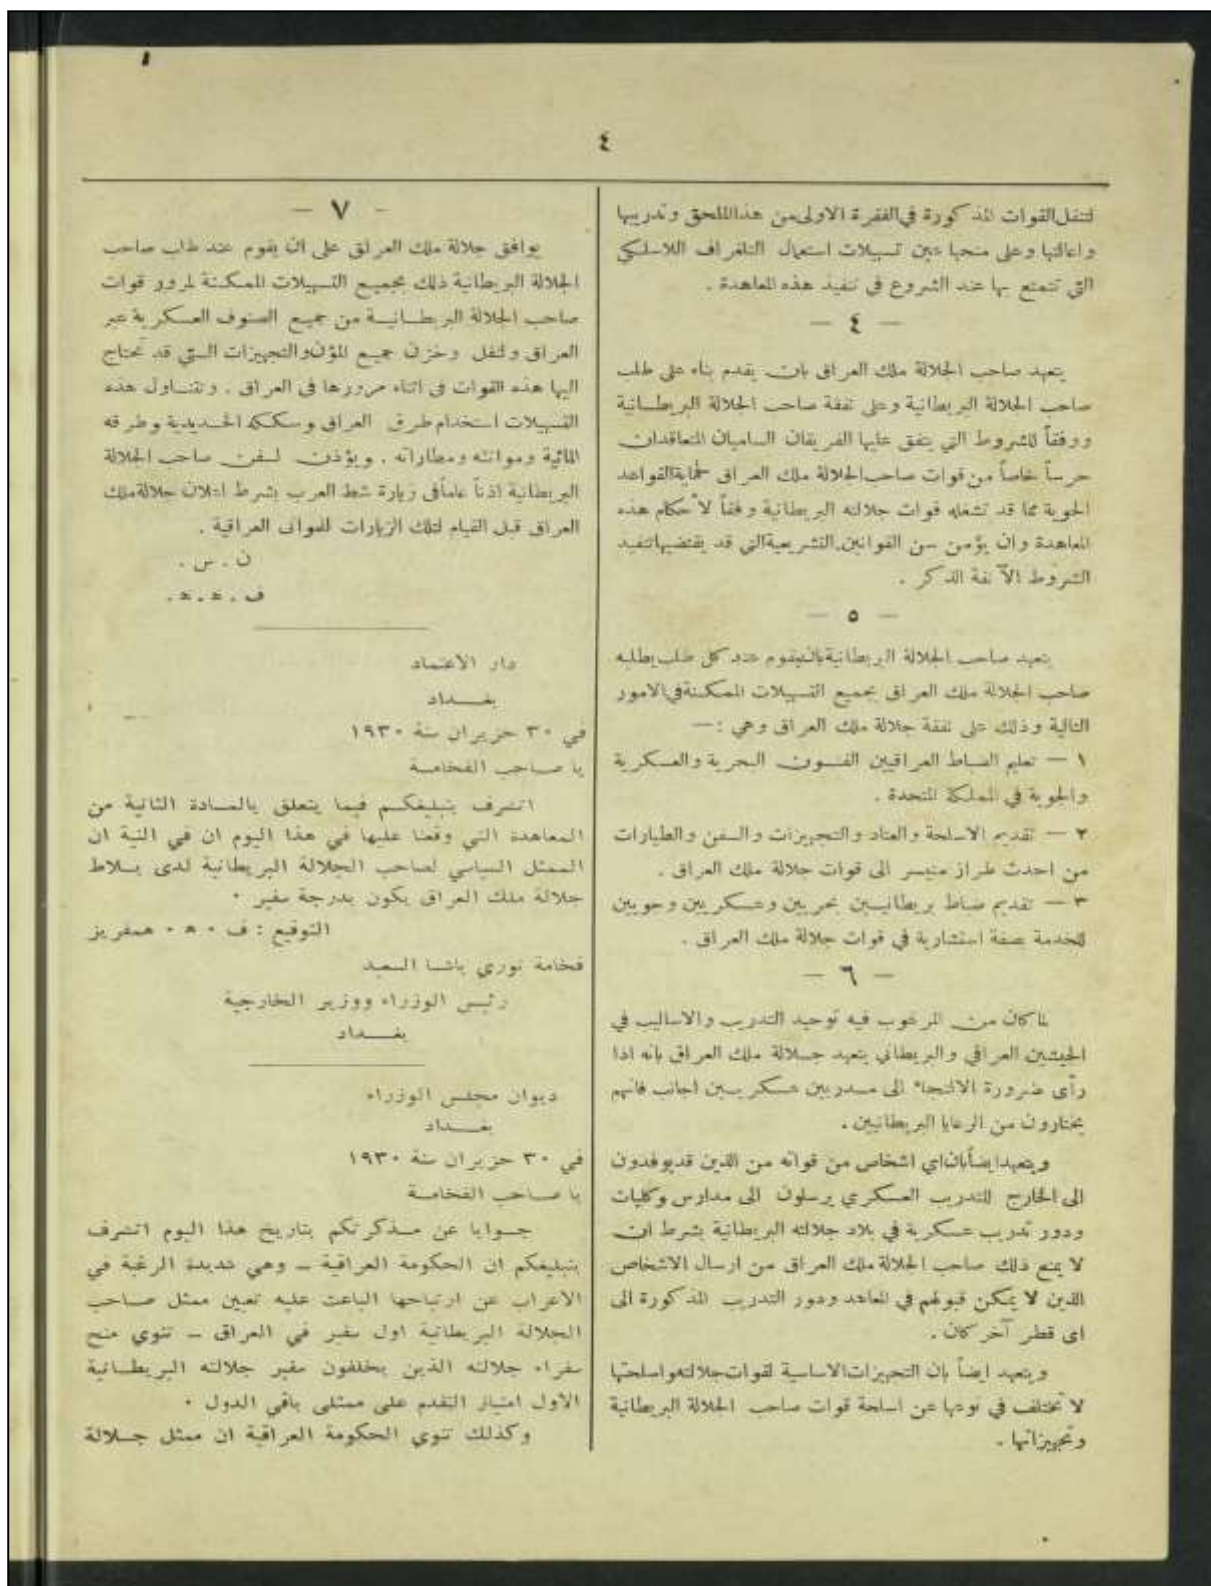 ٤
لتنقل القوات المذكورة في الفقرة الاولى من هذا الملحق وتدريبها
واعالتها وعلى منحها عين تسهيلات استعمال التلغراف اللاسلكي
التي تتمتع بها عند الشروع في تنفيذ هذه المعاهدة .
— ٤ —
يتعهد صاحب الجلالة ملك العراق بان يقدم بناء على طلب
صاحب الجلالة البريطانية وعلى نفقة صاحب الجلالة البريطانية
ووفقاً للشروط التي يتفق عليها الفريقان الساميان المتعاقدان
حرساً خاصاً من قوات صاحب الجلالة ملك العراق لحماية القواعد
الجوية مما قد تشغله قوات جلالته البريطانية وفقاً لأحكام هذه
المعاهدة وان يؤمن سن القوانين التشريعية التي قد يقتضيها تنفيذ
الشروط الآنفة الذكر .
— ٥ —
يتعهد صاحب الجلالة البريطانية بان يقوم عند كل طلب يطلبه
صاحب الجلالة ملك العراق بجميع التسهيلات الممكنة في الامور
التالية وذلك على نفقة جلالة ملك العراق وهي :—
١ — تعليم الضباط العراقيين الفنون البحرية والعسكرية
والجوية في المملكة المتحدة .
٢ — تقديم الاسلحة والعتاد والتجهيزات والسفن والطيارات
من احدث طراز متيسر الى قوات جلالة ملك العراق .
٣ — تقديم ضباط بريطانيين بحريين وعسكريين وجويين
للخدمة بصفة استشارية في قوات جلالة ملك العراق .
— ٦ —
لما كان من المرغوب فيه توحيد التدريب والاساليب في
الجيشين العراقي والبريطاني يتعهد جلالة ملك العراق بانه اذا
رأى ضرورة الالتجاء الى مدربين عسكريين اجانب فانهم
يختارون من الرعايا البريطانيين .
ويتعهد ايضاً بان اي اشخاص من قواته من الذين قد يوفدون
الى الخارج للتدريب العسكري يرسلون الى مدارس وكليات
ودور تدريب عسكرية في بلاد جلالته البريطانية بشرط ان
لا يمنع ذلك صاحب الجلالة ملك العراق من ارسال الاشخاص
الذين لا يمكن قبولهم في المعاهد ودور التدريب المذكورة الى
اى قطر آخر كان .
ويتعهد ايضاً بان التجهيزات الاساسية لقوات جلالته واسلحتها
لا تختلف في نوعها عن اسلحة قوات صاحب الجلالة البريطانية
وتجهيزاتها .
— ٧ —
يوافق جلالة ملك العراق على ان يقوم عند طلب صاحب
الجلالة البريطانية ذلك بجميع التسهيلات الممكنة لمرور قوات
صاحب الجلالة البريطانية من جميع الصنوف العسكرية عبر
العراق ولنقل وخزن جميع المؤن والتجهيزات التي قد تحتاج
اليها هذه القوات في اثناء مرورها في العراق . وتتناول هذه
التسهيلات استخدام طرق العراق وسككه الحديدية وطرقه
المائية وموانئه ومطاراته . ويؤذن لسفن صاحب الجلالة
البريطانية اذناً عاماً في زيارة شط العرب بشرط اعلان جلالة ملك
العراق قبل القيام لتلك الزيارات للموانى العراقية .
ن . س .
ف . ه . ه .
دار الاعتماد
بغداد
في ٣٠ حزيران سنة ١٩٣٠
يا صاحب الفخامة
اتشرف بتبليغكم فيما يتعلق بالمادة الثانية من
المعاهدة التي وقعنا عليها في هذا اليوم ان في النية ان
الممثل السياسي لصاحب الجلالة البريطانية لدى بلاط
جلالة ملك العراق يكون بدرجة سفير .
التوقيع : ف . ه . همفريز
فخامة نوري باشا السعيد
رئيس الوزراء ووزير الخارجية
بغداد
ديوان مجلس الوزراء
بغداد
في ٣٠ حزيران سنة ١٩٣٠
يا صاحب الفخامة
جوابا عن مذكرتكم بتاريخ هذا اليوم اتشرف
بتبليغكم ان الحكومة العراقية – وهي شديدة الرغبة في
الاعراب عن ارتياحها الباعث عليه تعيين ممثل صاحب
الجلالة البريطانية اول سفير في العراق – تنوي منح
سفراء جلالته الذين يخلفون سفير جلالته البريطانية
الاول امتياز التقدم على ممثلى باقي الدول .
وكذلك تنوي الحكومة العراقية ان ممثل جلالة